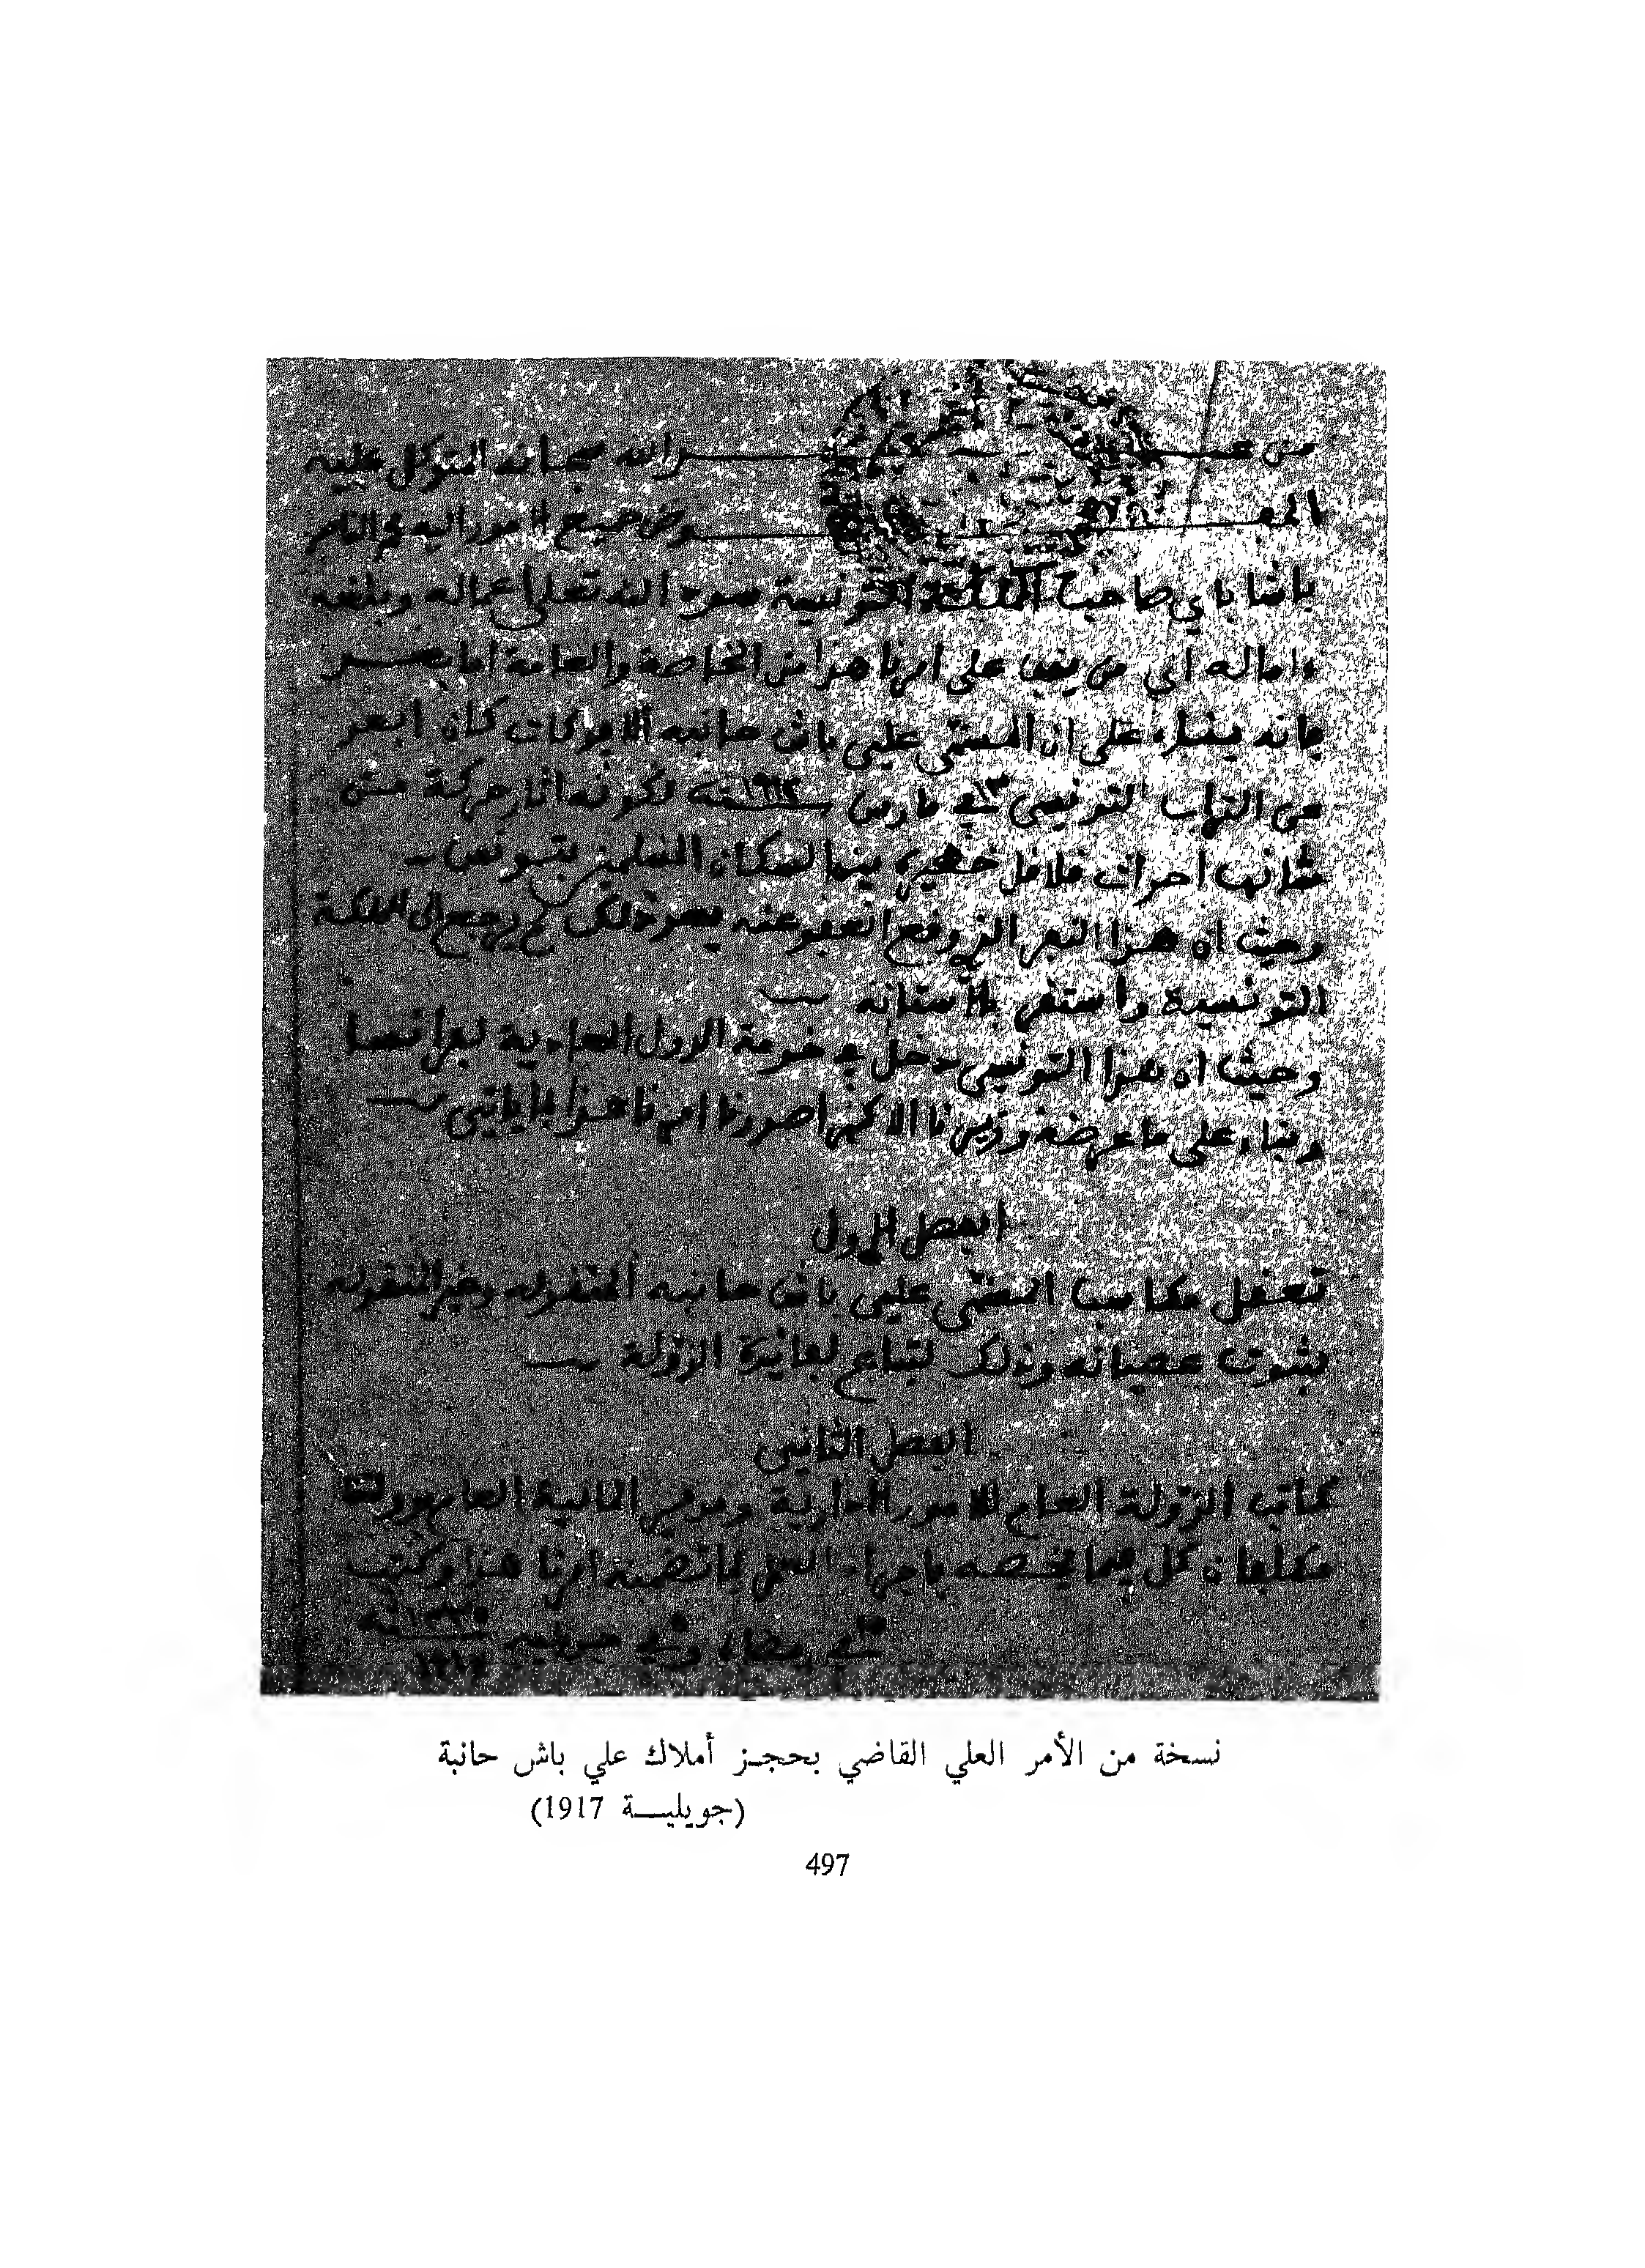 من عبد الله سبحانه المتوكل عليه
المفوض جميع الامور اليه محمد الناصر
باشا باي صاحب المملكة التونسية سدد الله تعلى اعماله وبلغه
ءاماله الى من يقف على امرنا هذا من الخاصة والعامة اما بعد
فانه بناء على ان المسمى علي باش حانبه الافوكات كان ابعد
من التراب التونسي في ١٣ مارس سنة ١٩١٢ لكونه اثار حركة من
شانها احداث قلاقل خطيرة بين السكان المسلمين بتونس
وحيث ان هذا النفر الذي وقع العفو عنه بعد ذلك لم يرجع الى المملكة
التونسية واستقر بالاستانة
وحيث ان هذا التونسي دخل في خدمة الدول المعادية لفرانسا
وبناء على ما عرضه وزيرنا الاكبر اصدرنا امرنا هذا بما ياتي
الفصل الاول
تعقل مكاسب المسمى علي باش حانبه المنقوله وغير المنقوله
بثبوت عصيانه وذلك لتباع لفائدة الدولة
الفصل الثاني
كاتب الدولة العام للامور الادارية ومدير المالية العام بدولتنا
مكلفان كل فيما يخصه باجراء العمل بما تضمنه امرنا هذا وكتب
في رمضان وفي جويليه سنة ١٣٣٥
١٩١٧
نسخة من الأمر العلي القاضي بحجز أملاك علي باش حانبة
(جويلية 1917)
497